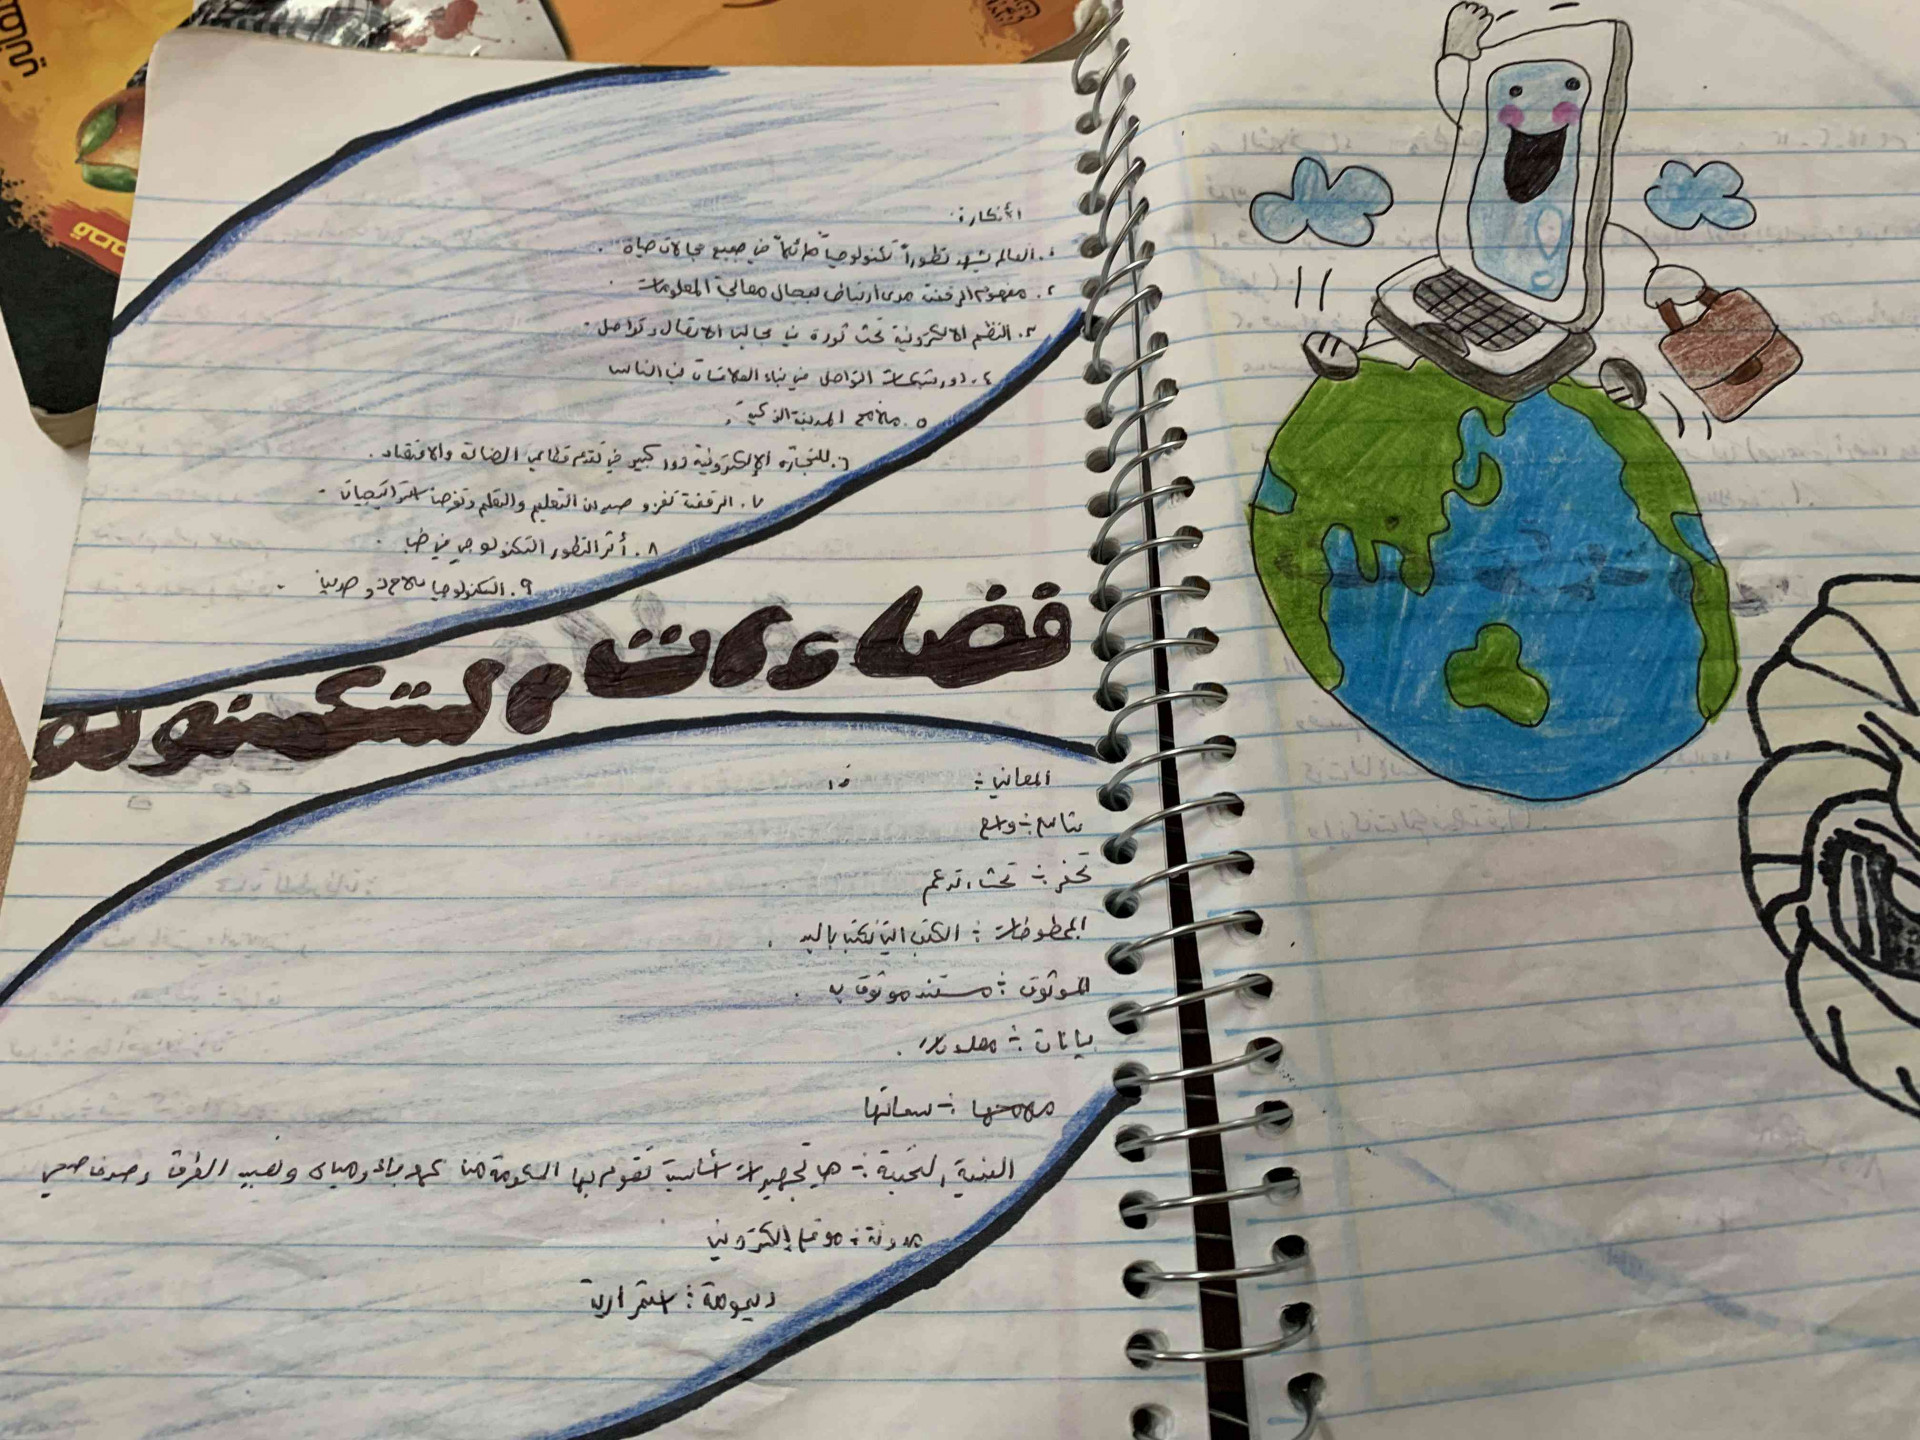 الأفكار:
١. العالم يشهد تطوراً تكنولوجياً هائلاً في جميع مجالات حياة.
٢. مفهوم الرقمنة مدى ارتباط بمجال معالجة المعلومات.
٣. النظم الالكترونية تحث ثورة في مجالب الاتصال وتواصل.
٤. دور شبكات التواصل في بناء العلاقات بين الناس
٥. ملامح المدينة الذكية.
٦. للتجارة الإلكترونية دور كبير في تقدم قطاعي الصناعة والاقتصاد.
٧. الرقمنة تغزو ميدان التعليم والتعلم وتفرض استراتيجيات.
٨. أثر التطور التكنولوجي في
٩. التكنولوجيا سلاح ذو حدين.
فضاءات التكنولو
المعاني:
شاسع: واسع
تحفز: تحث، تدعم
المخطوطات: الكتب التي تكتب باليد.
الموثوق: مستند موثوق به.
بيانات: معلومات.
ملامحها: سماتها
البنية التحتية: هي تجهيزات أساسية تقوم بها الحكومة من كهرباء ومياه وتعبيد الطرق وصرف صحي
مدونة: موقع إلكتروني
ديمومة: استمرارية